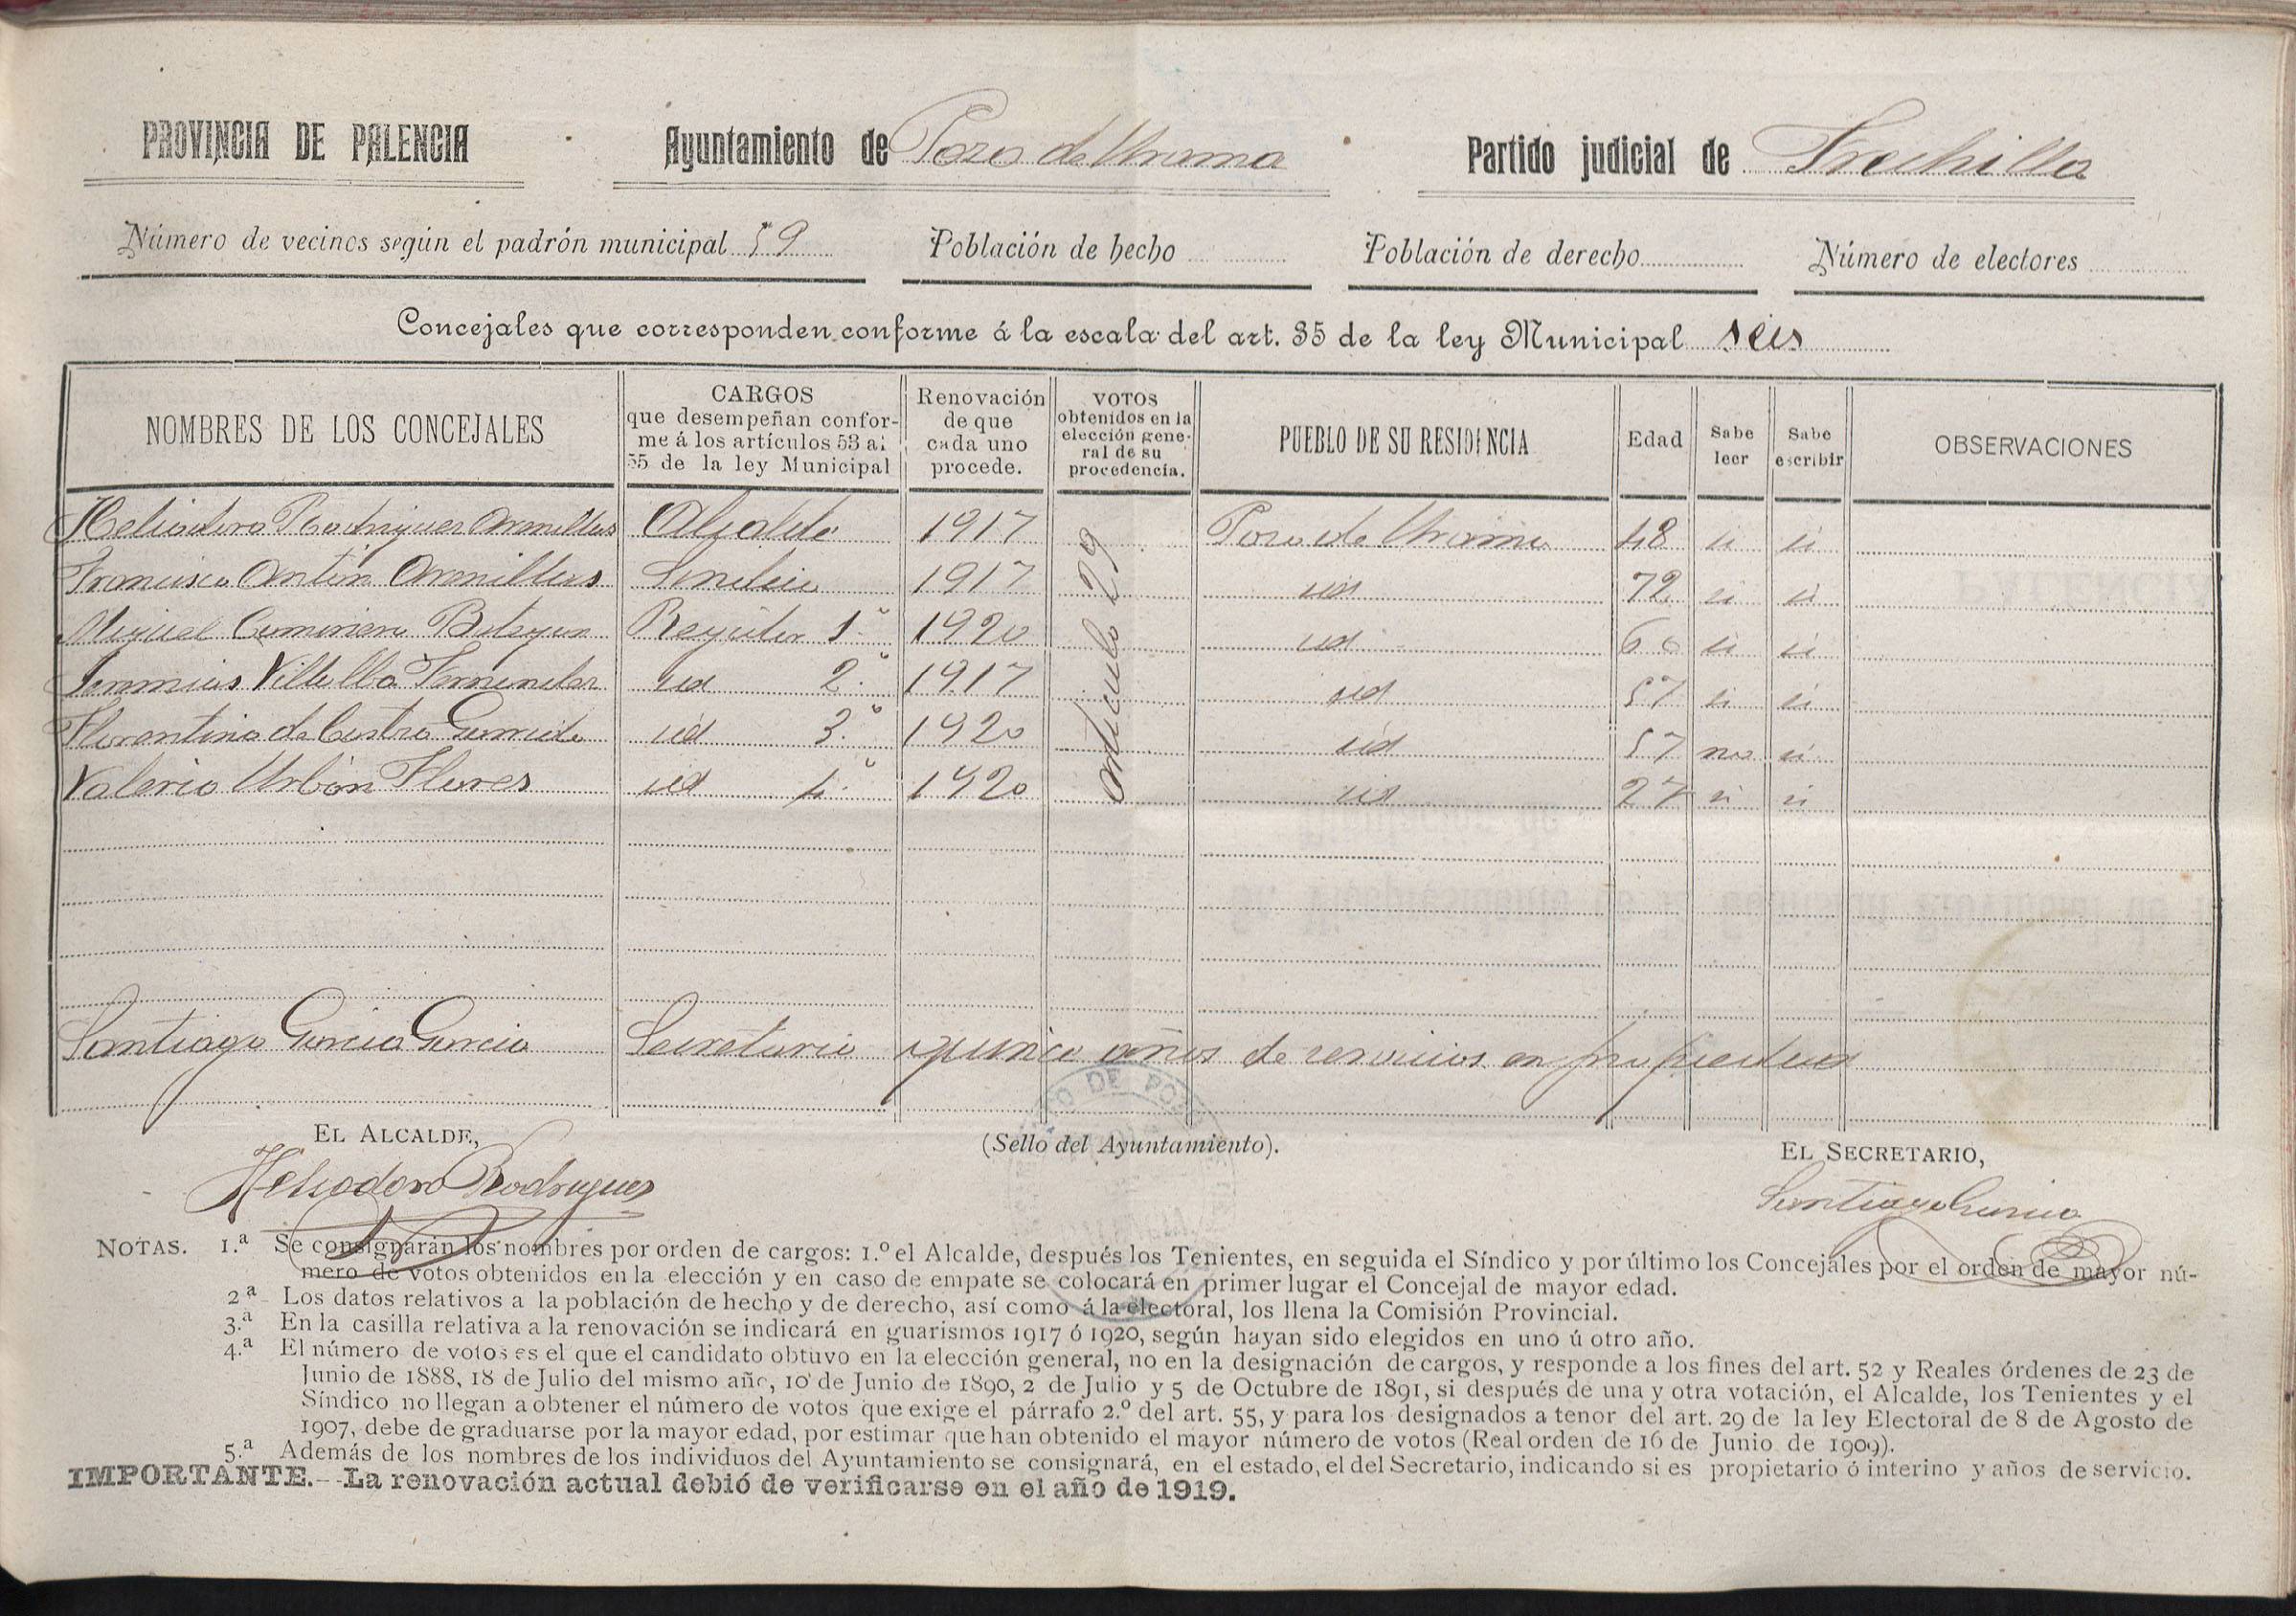 PROVINCIA DE PALENCIA Ayuntamiento de Pozo de Urama Partido judicial de Frechilla
Número de vecinos según el padrón municipal 59 Población de hecho Población de derecho Número de electores
Concejales que corresponden conforme á la escala del art. 35 de la ley Municipal seis
NOMBRES DE LOS CONCEJALES
CARGOS
que desempeñan confor-
me á los artículos 53 al
55 de la ley Municipal
Renovación
de que
cada uno
procede.
VOTOS
obtenidos en la
elección gene-
ral de su
procedencia.
PUEBLO DE SU RESIDENCIA
Edad
Sabe
leer
Sabe
escribir
OBSERVACIONES
Heliodoro Rodriguez Armillas Alcalde 1917 Pozo de Urama 48 si si
Francisco Antón Armillas Sindico 1917 id 72 si si
Miguel Regidor 1.º 1920 id 60 si si
Villalba id 2.º 1917 id 57 si si
Florentino de Castro id 3.º 1920 id 57 no si
Valerio Urbón Flores id 4.º 1920 id 27 si si
articulo 29
Santiago Garcia Garcia Secretario quince años de servicios en propiedad
EL ALCALDE,
Heliodoro Rodriguez
(Sello del Ayuntamiento).
EL SECRETARIO,
Santiago Garcia
NOTAS. 1.ª Se consignarán los nombres por orden de cargos: 1.º el Alcalde, después los Tenientes, en seguida el Síndico y por último los Concejales por el orden de mayor nú-
mero de votos obtenidos en la elección y en caso de empate se colocará en primer lugar el Concejal de mayor edad.
2ª Los datos relativos a la población de hecho y de derecho, así como á la electoral, los llena la Comisión Provincial.
3.ª En la casilla relativa a la renovación se indicará en guarismos 1917 ó 1920, según hayan sido elegidos en uno ú otro año.
4.ª El número de votos es el que el candidato obtuvo en la elección general, no en la designación de cargos, y responde a los fines del art. 52 y Reales órdenes de 23 de
Junio de 1888, 18 de Julio del mismo año, 10 de Junio de 1890, 2 de Julio y 5 de Octubre de 1891, si después de una y otra votación, el Alcalde, los Tenientes y el
Síndico no llegan a obtener el número de votos que exige el párrafo 2.º del art. 55, y para los designados a tenor del art. 29 de la ley Electoral de 8 de Agosto de
1907, debe de graduarse por la mayor edad, por estimar que han obtenido el mayor número de votos (Real orden de 16 de Junio de 1909).
5.ª Además de los nombres de los individuos del Ayuntamiento se consignará, en el estado, el del Secretario, indicando si es propietario ó interino y años de servicio.
IMPORTANTE.—La renovación actual debió de verificarse en el año de 1919.